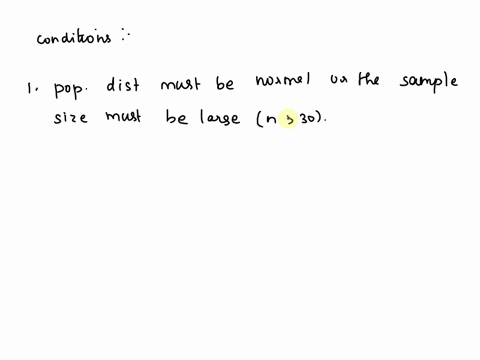 conditions :-
1. pop. dist must be normal or the sample
size must be large (n > 30).